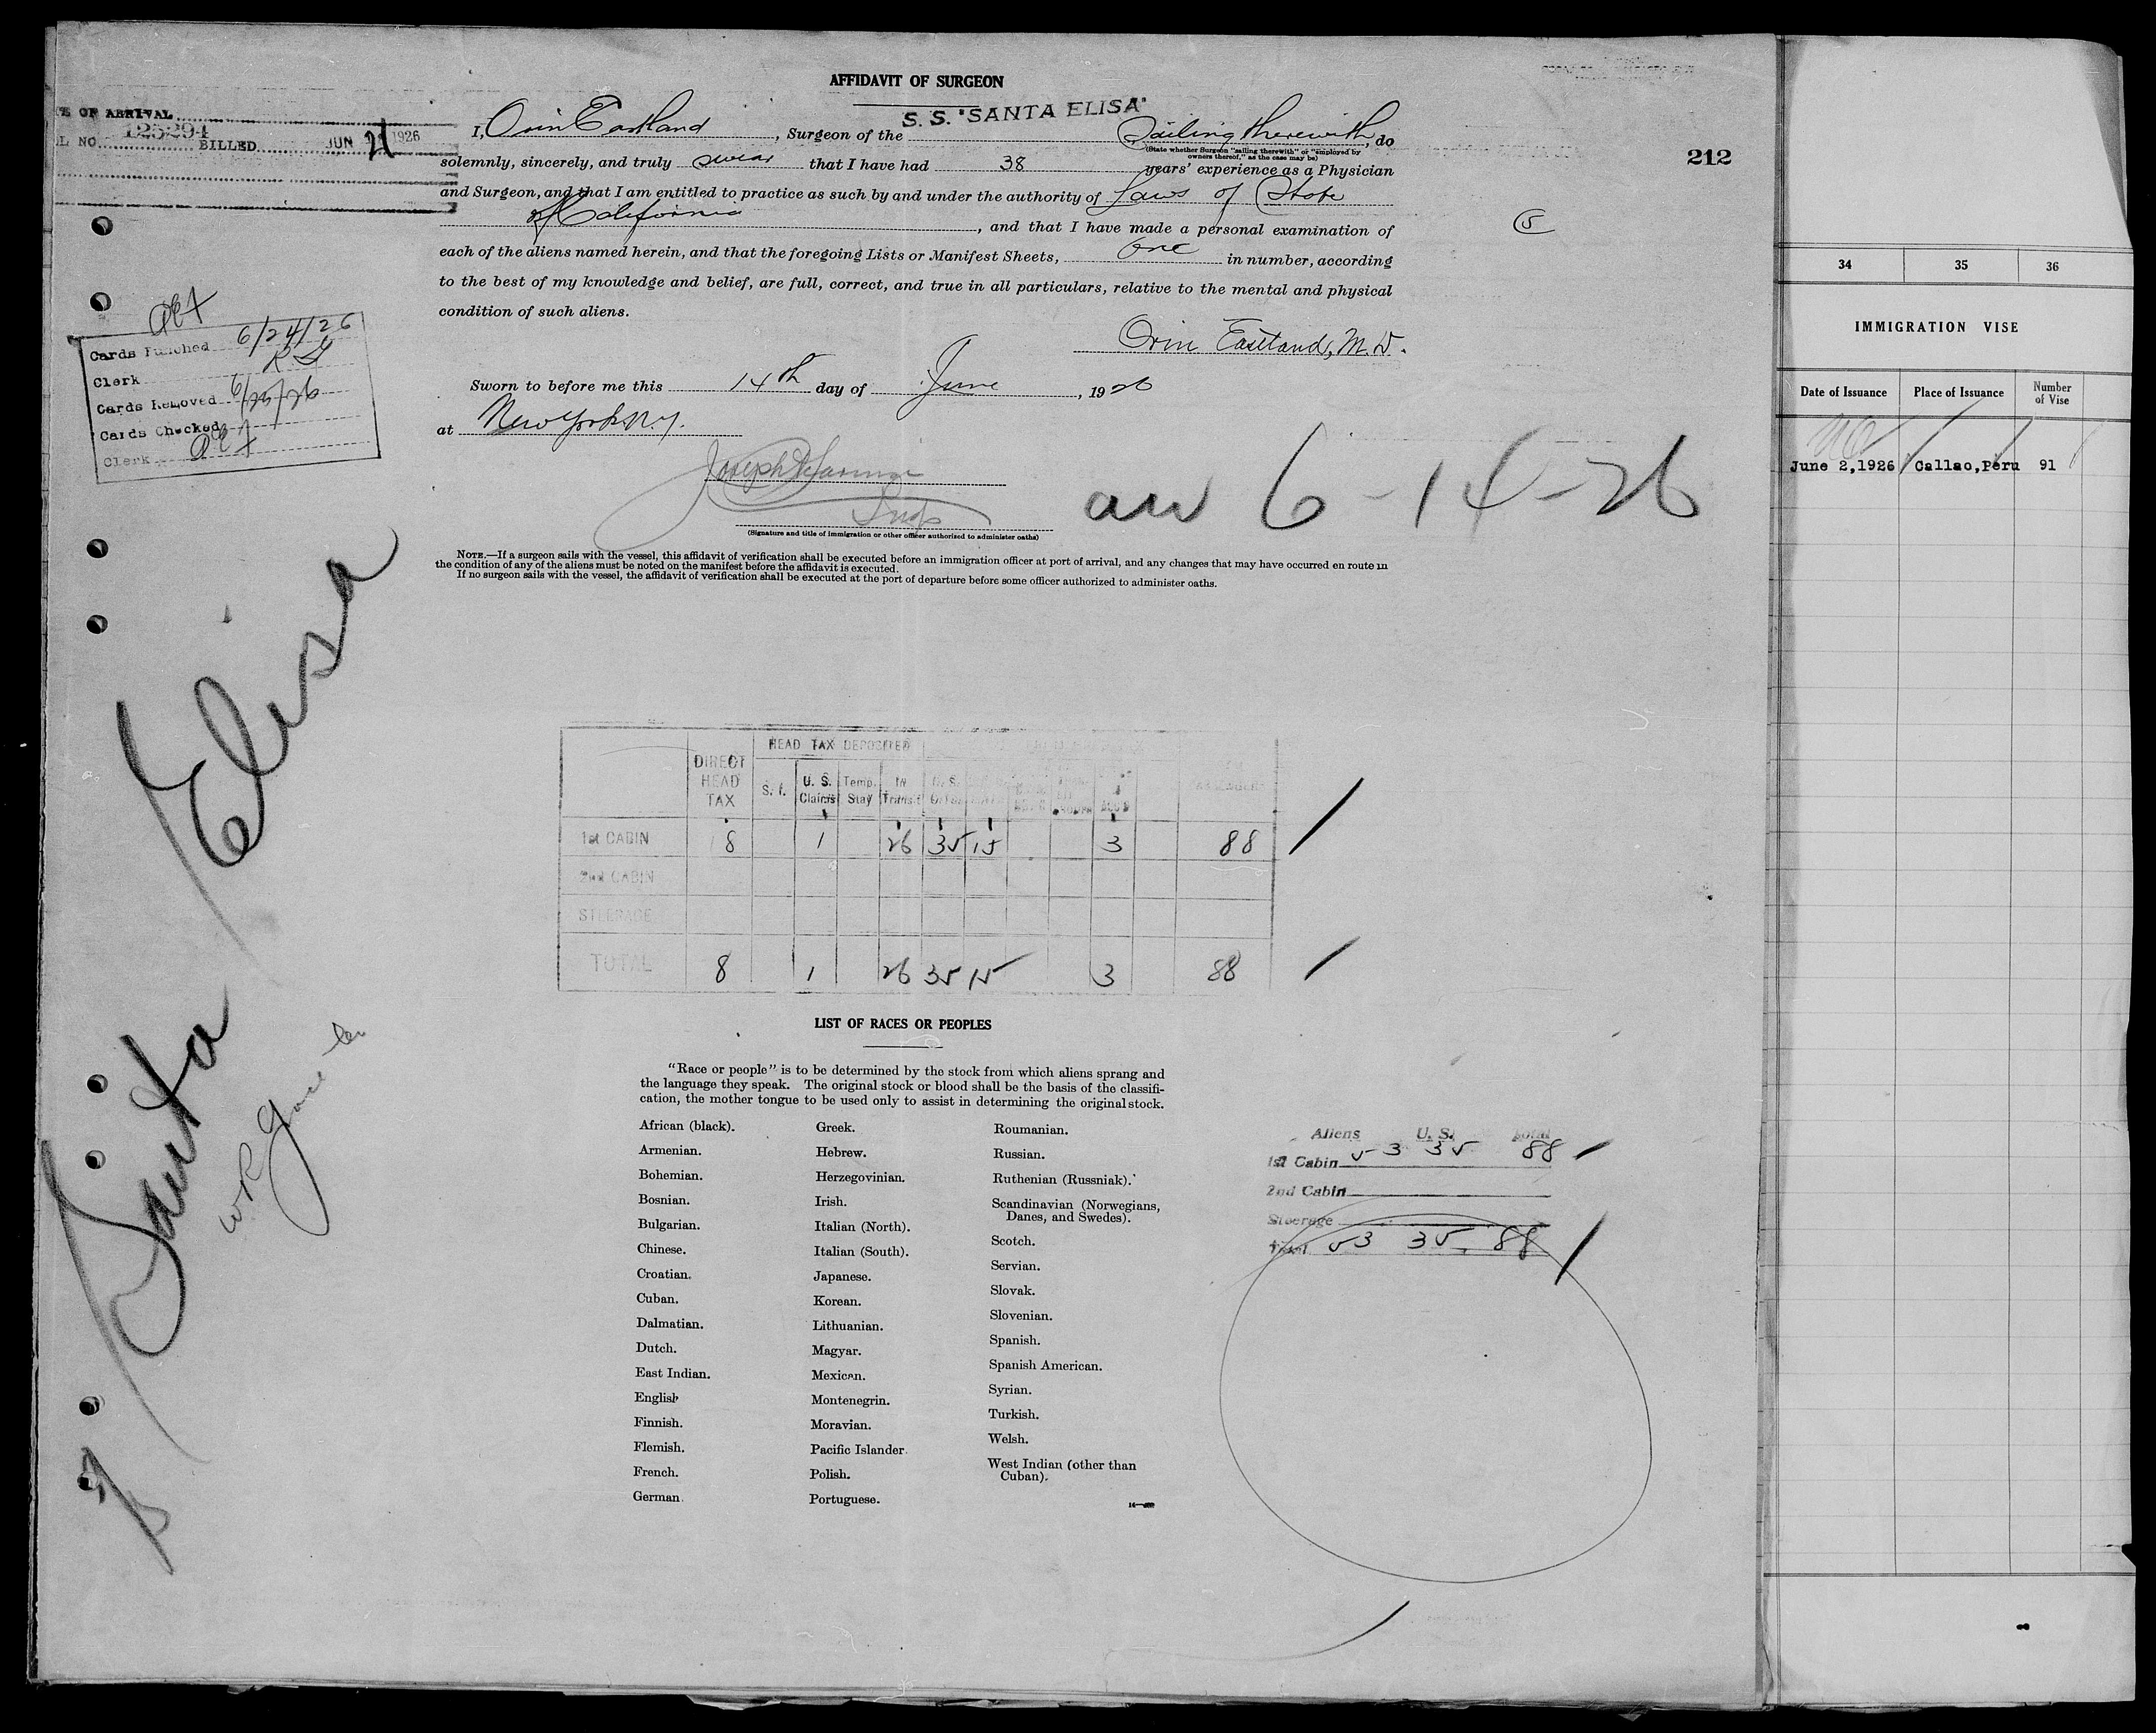 AFFIDAVIT OF SURGEON
S. S. "SANTA ELISA"
E OF ARRIVAL
L NO. 125294 BILLED JUN 21 1926
I, Orin Eastland, Surgeon of the Sailing therewith, do
(State whether Surgeon "sailing therewith" or "employed by
owners thereof," as the case may be)
212
solemnly, sincerely, and truly swear that I have had 38 years' experience as a Physician
and Surgeon, and that I am entitled to practice as such by and under the authority of Laws of State
of California, and that I have made a personal examination of
5
each of the aliens named herein, and that the foregoing Lists or Manifest Sheets, one in number, according
to the best of my knowledge and belief, are full, correct, and true in all particulars, relative to the mental and physical
condition of such aliens.
Orin Eastland, M.D.
Sworn to before me this 14th day of June, 1926
at New York N.Y.
Insp
(Signature and title of immigration or other officer authorized to administer oaths)
an 6-14-26
NOTE.—If a surgeon sails with the vessel, this affidavit of verification shall be executed before an immigration officer at port of arrival, and any changes that may have occurred en route in
the condition of any of the aliens must be noted on the manifest before the affidavit is executed.
If no surgeon sails with the vessel, the affidavit of verification shall be executed at the port of departure before some officer authorized to administer oaths.
Cards Punched 6/24/26
Clerk
Cards Removed 6/25/26
Cards Checked
Clerk
Santa Elisa
HEAD TAX DEPOSITED
DIRECT HEAD TAX
S. I.
U. S. Claims
Temp. Stay
In Transit
U. S.
1st CABIN 8 1 26 35 15 3 88
2nd CABIN
STEERAGE
TOTAL 8 1 26 35 15 3 88
LIST OF RACES OR PEOPLES
"Race or people" is to be determined by the stock from which aliens sprang and
the language they speak. The original stock or blood shall be the basis of the classifi-
cation, the mother tongue to be used only to assist in determining the original stock.
African (black).
Armenian.
Bohemian.
Bosnian.
Bulgarian.
Chinese.
Croatian.
Cuban.
Dalmatian.
Dutch.
East Indian.
English
Finnish.
Flemish.
French.
German.
Greek.
Hebrew.
Herzegovinian.
Irish.
Italian (North).
Italian (South).
Japanese.
Korean.
Lithuanian.
Magyar.
Mexican.
Montenegrin.
Moravian.
Pacific Islander.
Polish.
Portuguese.
Roumanian.
Russian.
Ruthenian (Russniak).
Scandinavian (Norwegians,
Danes, and Swedes).
Scotch.
Servian.
Slovak.
Slovenian.
Spanish.
Spanish American.
Syrian.
Turkish.
Welsh.
West Indian (other than
Cuban).
Aliens U. S. Total
1st Cabin 53 35 88
2nd Cabin
Steerage
Total 53 35 88
34 35 36
IMMIGRATION VISE
Date of Issuance
Place of Issuance
Number
of Vise
June 2,1926 Callao,Peru 91